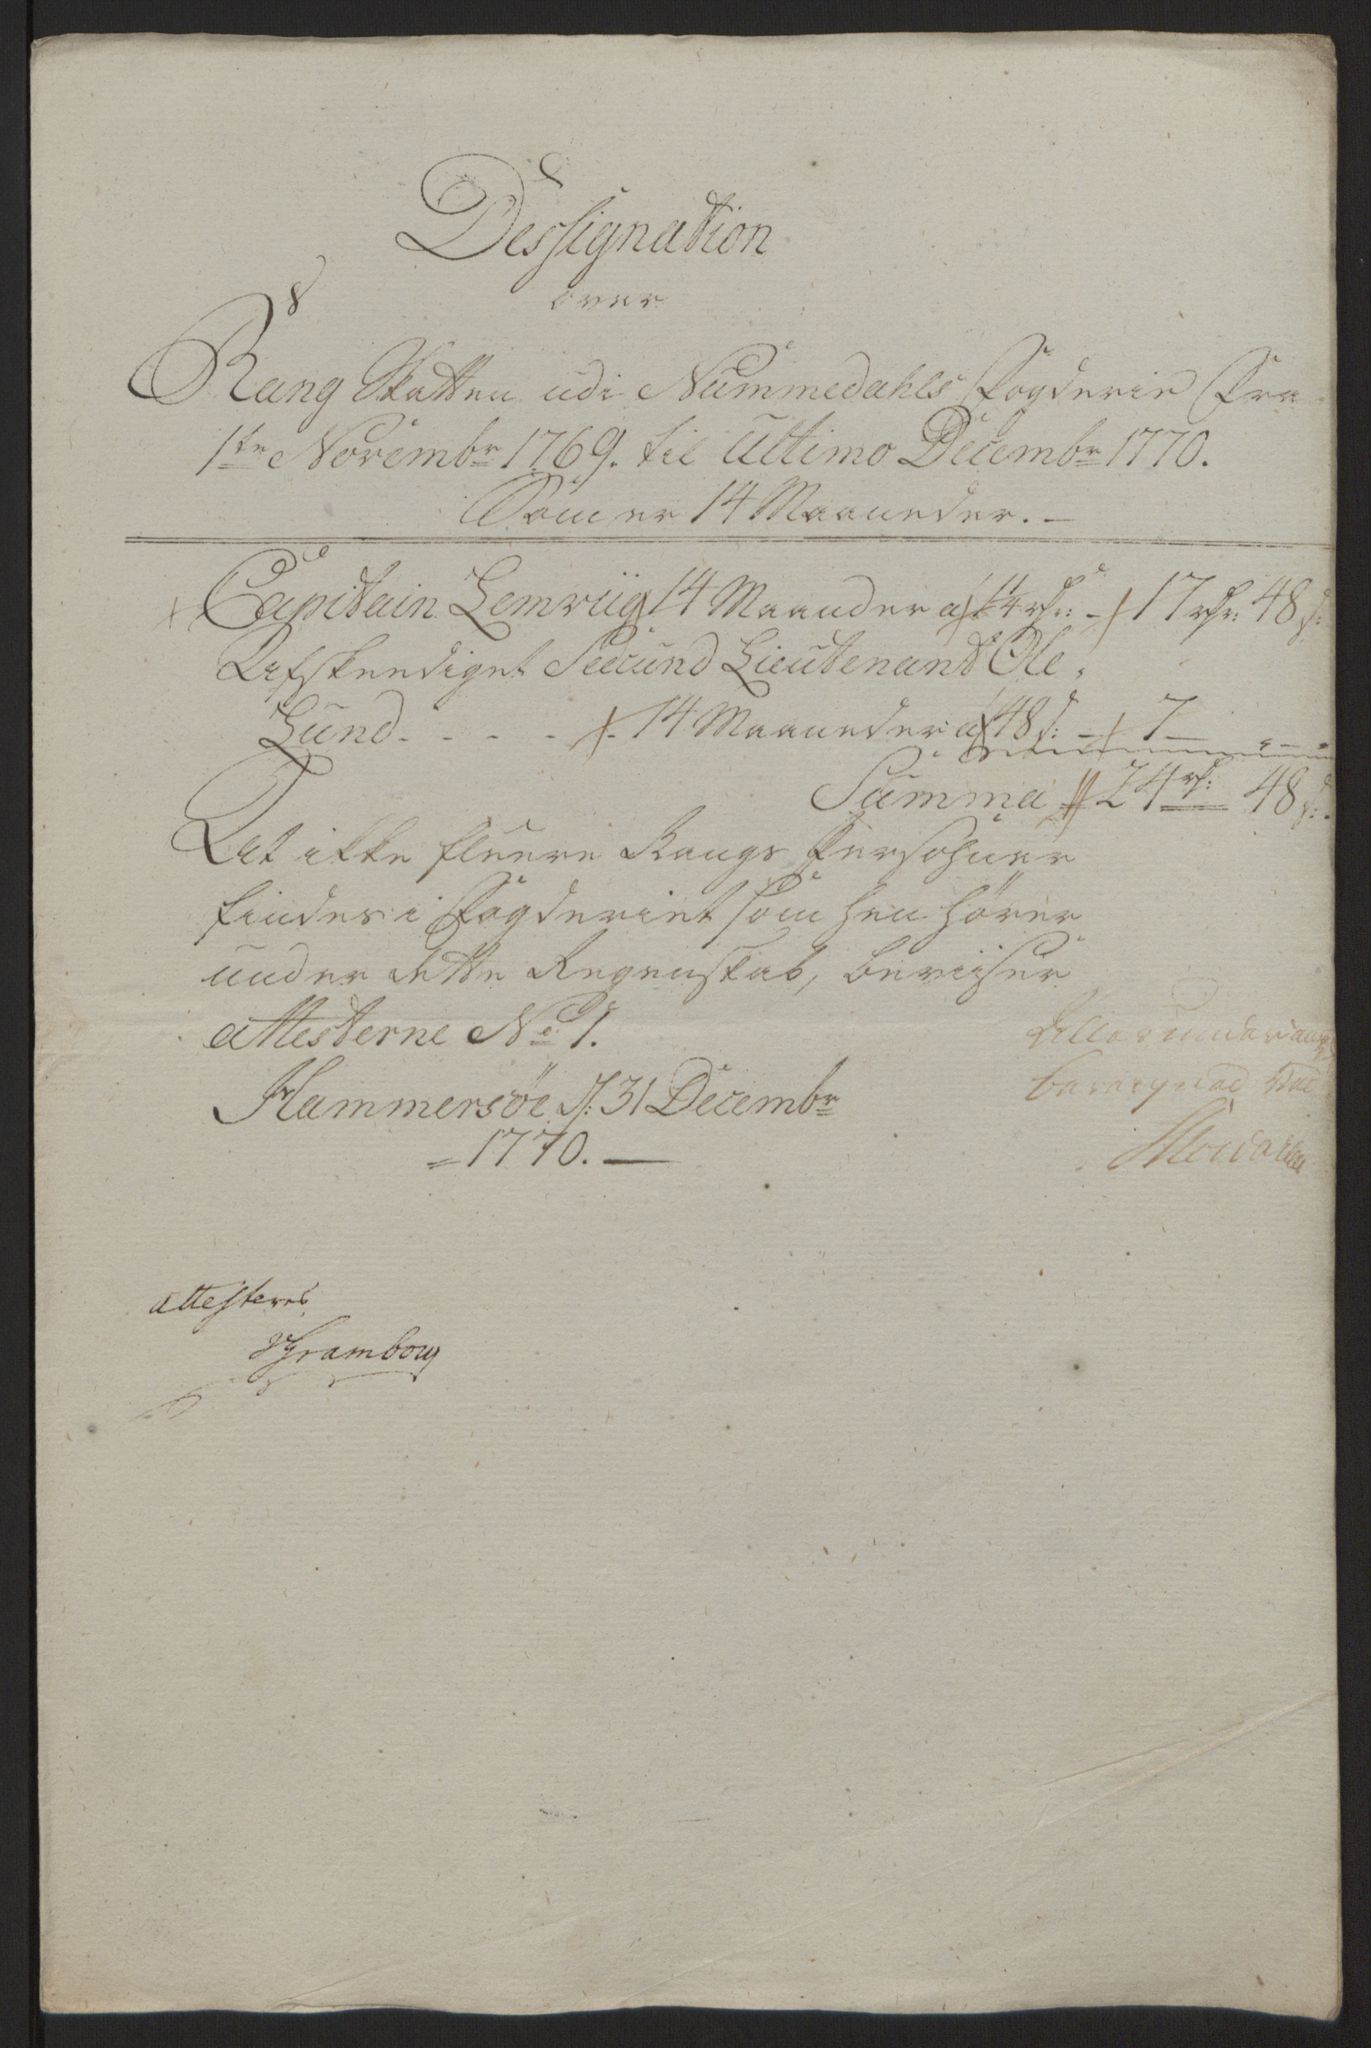 Dessignation
over
Rang Skatten udi Nummedahls Fogderie Fra
1ste Novembr 1769. til Ultimo Decembr 1770.
Som er 14 Maaneder. -
Capitain Lemviig 14 Maander a 1 1/4 rdr: - 17 rdr: 48 s:
Aftskendiget Secund Lieutenant Ole
Lund. - - - - 14 Maaneder a 48 s: - 7 - " - "
Summa 24 rd: 48 s:
At ikke fleere Rangs Persohner
findes i Fogderiet som hen hörer
under dette Regenskab, beviiser
attesterne No 1.
Hammersöe d: 31 Decembr
= 1770. -
attesteres
Gramboug